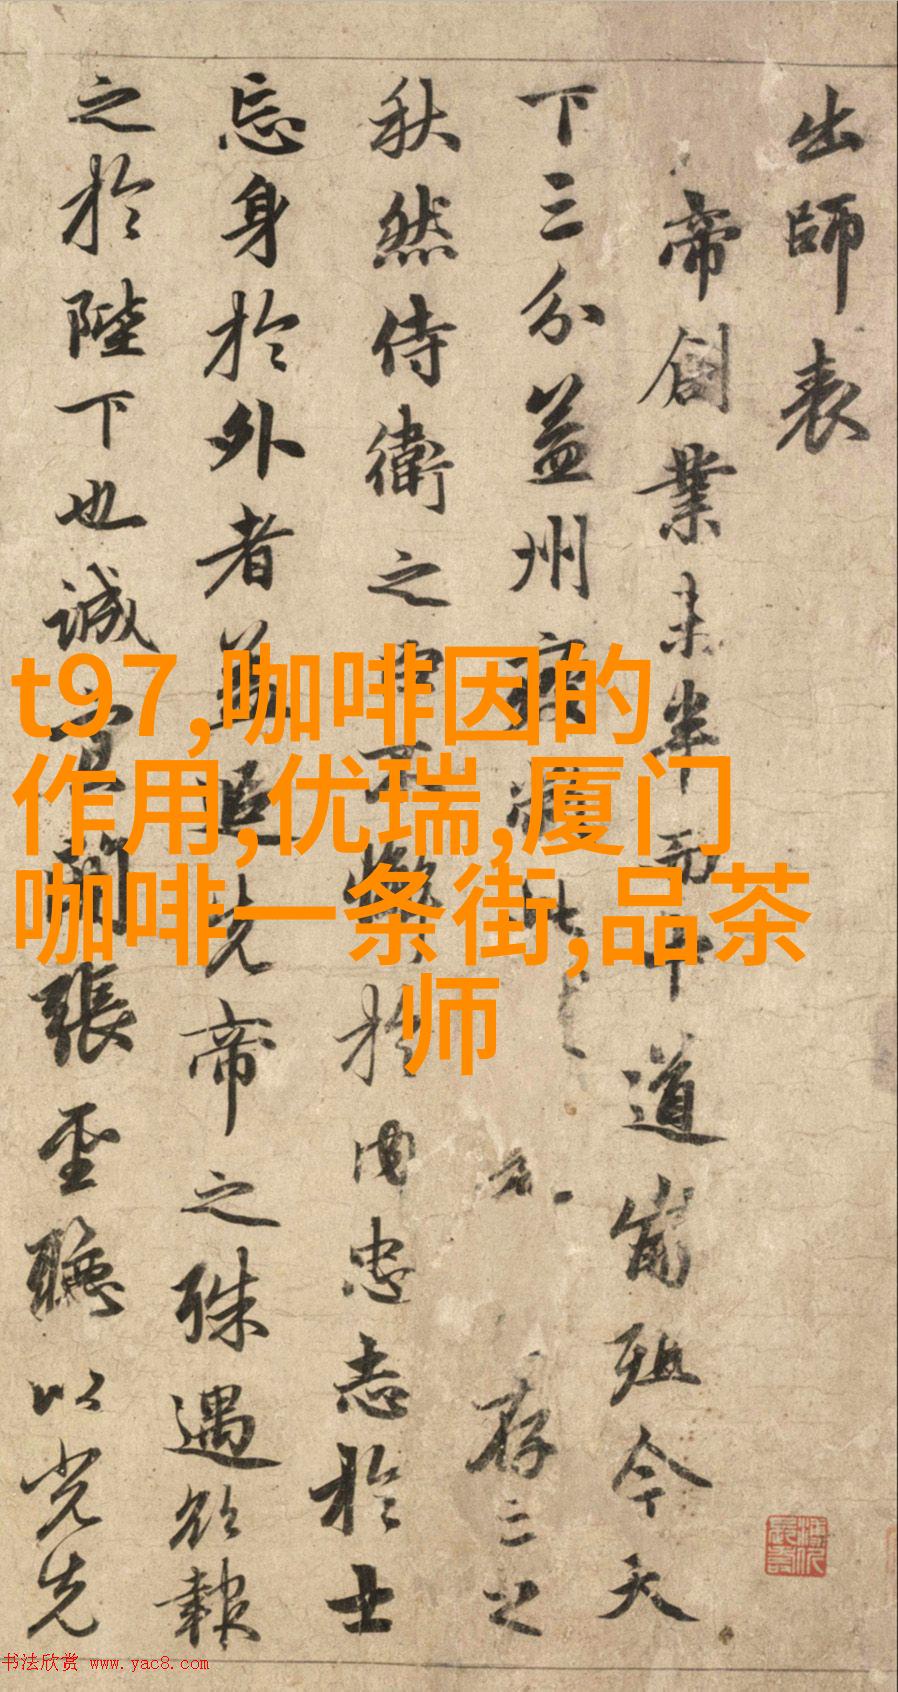 出師表
帝創業未半而中道崩殂今天
下三分益州疲弊此存亡之
秋然侍衛之臣不懈於内忠志於士
忘身於外者蓋追先帝之殊遇欲報
之於陛下也誠宜開張聖聽以光先
t97,咖啡因的
作用,优瑞,厦门
咖啡一条街,品茶
师
书法欣赏 www.yac8.com